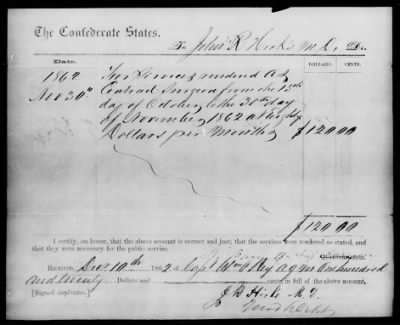 The Confederate States.
To John R Hicks M.D. Dr.
DATE. DOLLARS. CENTS.
1862 For Services rendered as
Nov 30th Contract Surgeon from the 15th
day of October to the 30th day
of November 1862 at Eighty
Dollars per Month $120.00
$120.00
I certify, on honor, that the above account is correct and just; that the services were rendered as stated, and
that they were necessary for the public service.
RECEIVED Dec 10th 1862 of Capt Wm Key AQM One hundred
and twenty Dollars and cents, in full of the above account.
[Signed duplicates.] J R Hicks M.D.